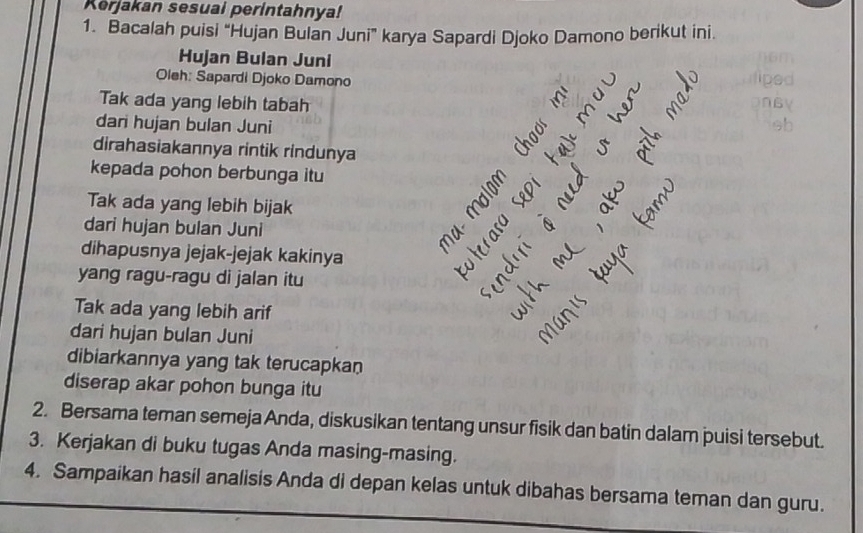 Kerjakan sesuai perintahnya!
1. Bacalah puisi “Hujan Bulan Juni” karya Sapardi Djoko Damono berikut ini.
Hujan Bulan Juni
Oleh: Sapardi Djoko Damono
Tak ada yang lebih tabah
dari hujan bulan Juni
dirahasiakannya rintik rindunya
kepada pohon berbunga itu
Tak ada yang lebih bijak
dari hujan bulan Juni
dihapusnya jejak-jejak kakinya
yang ragu-ragu di jalan itu
Tak ada yang lebih arif
dari hujan bulan Juni
dibiarkannya yang tak terucapkan
diserap akar pohon bunga itu
malam
kuterasa sepi tak mau
sendiri i need u here
with me, ako
manis kaya kamu
2. Bersama teman semeja Anda, diskusikan tentang unsur fisik dan batin dalam puisi tersebut.
3. Kerjakan di buku tugas Anda masing-masing.
4. Sampaikan hasil analisis Anda di depan kelas untuk dibahas bersama teman dan guru.